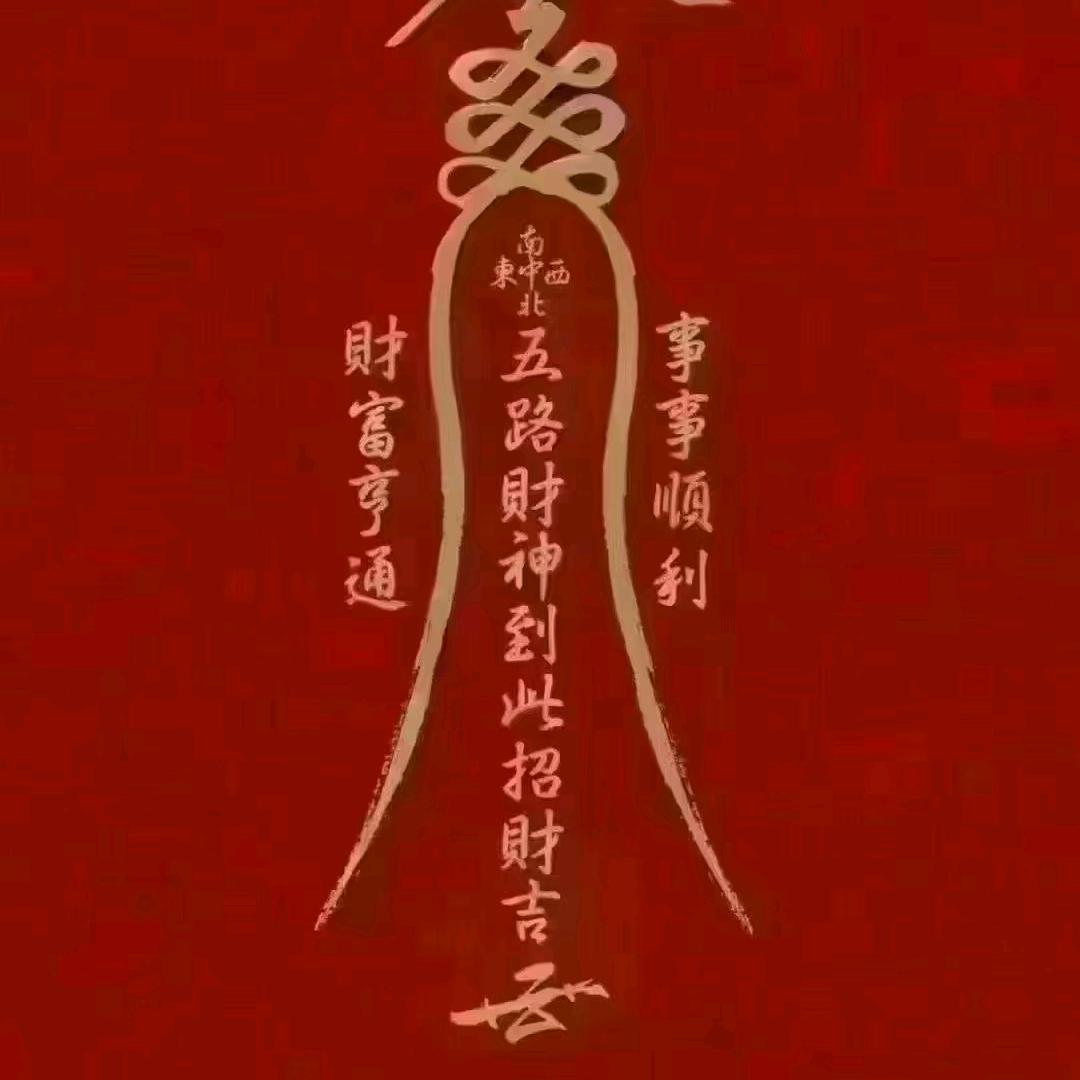 事事順利
南
東中西
北
五路財神到此招財吉
財富亨通